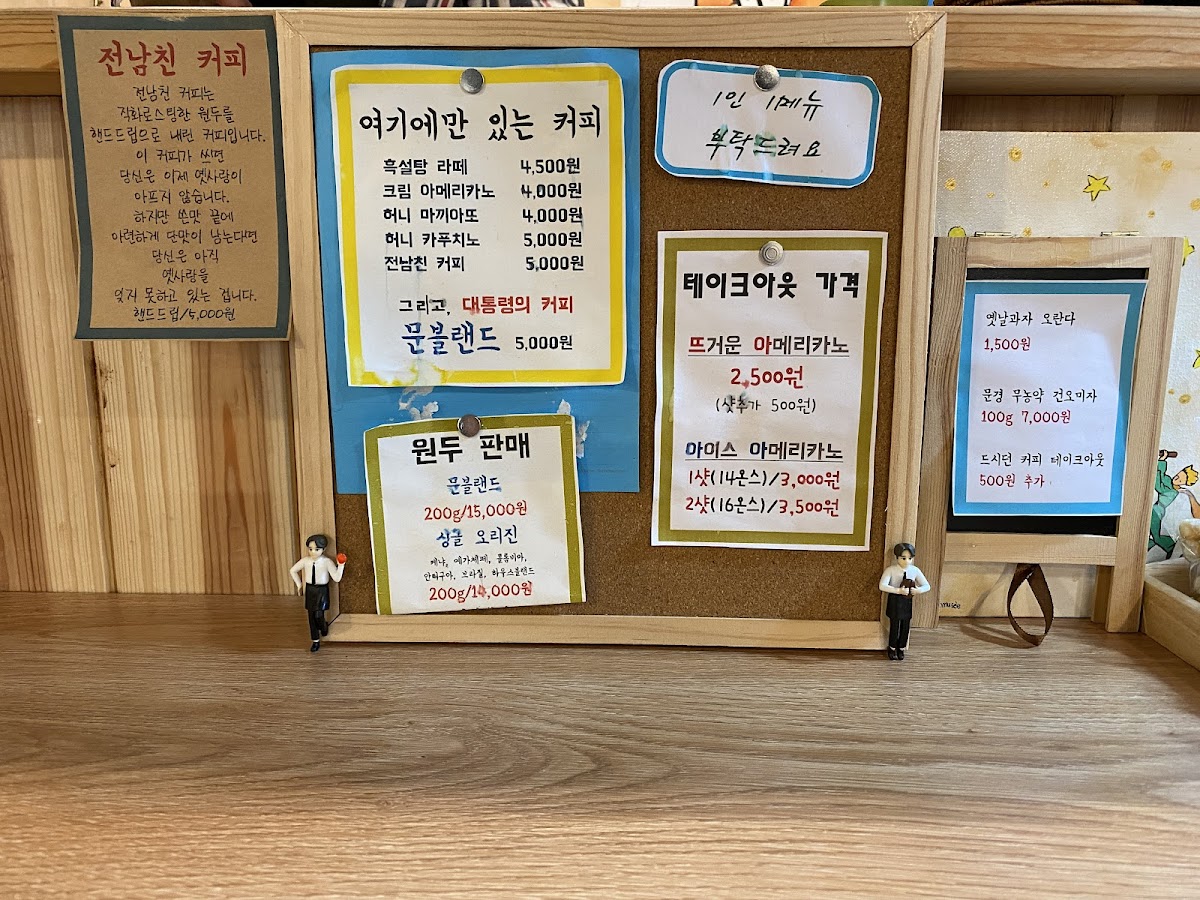 전남친 커피
전남친 커피는
직화로스팅한 원두를
핸드드립으로 내린 커피입니다.
이 커피가 쓰면
당신은 이제 옛사랑이
아프지 않습니다.
하지만 쓴맛 끝에
아련하게 단맛이 남는다면
당신은 아직
옛사랑을
잊지 못하고 있는 겁니다.
핸드드립/5,000원
여기에만 있는 커피
흑설탕 라떼 4,500원
크림 아메리카노 4,000원
허니 마끼아또 4,000원
허니 카푸치노 5,000원
전남친 커피 5,000원
그리고, 대통령의 커피
문블랜드 5,000원
원두 판매
문블랜드
200g/15,000원
싱글 오리진
케냐, 예가체페, 콜롬비아,
만데구아, 브라질, 하우스블랜드
200g/14,000원
1인 1메뉴
부탁드려요
테이크아웃 가격
뜨거운 아메리카노
2,500원
(샷추가 500원)
아이스 아메리카노
1샷(14온스)/3,000원
2샷(16온스)/3,500원
옛날과자 오란다
1,500원
문경 무농약 건오미자
100g 7,000원
드시던 커피 테이크아웃
500원 추가
musée